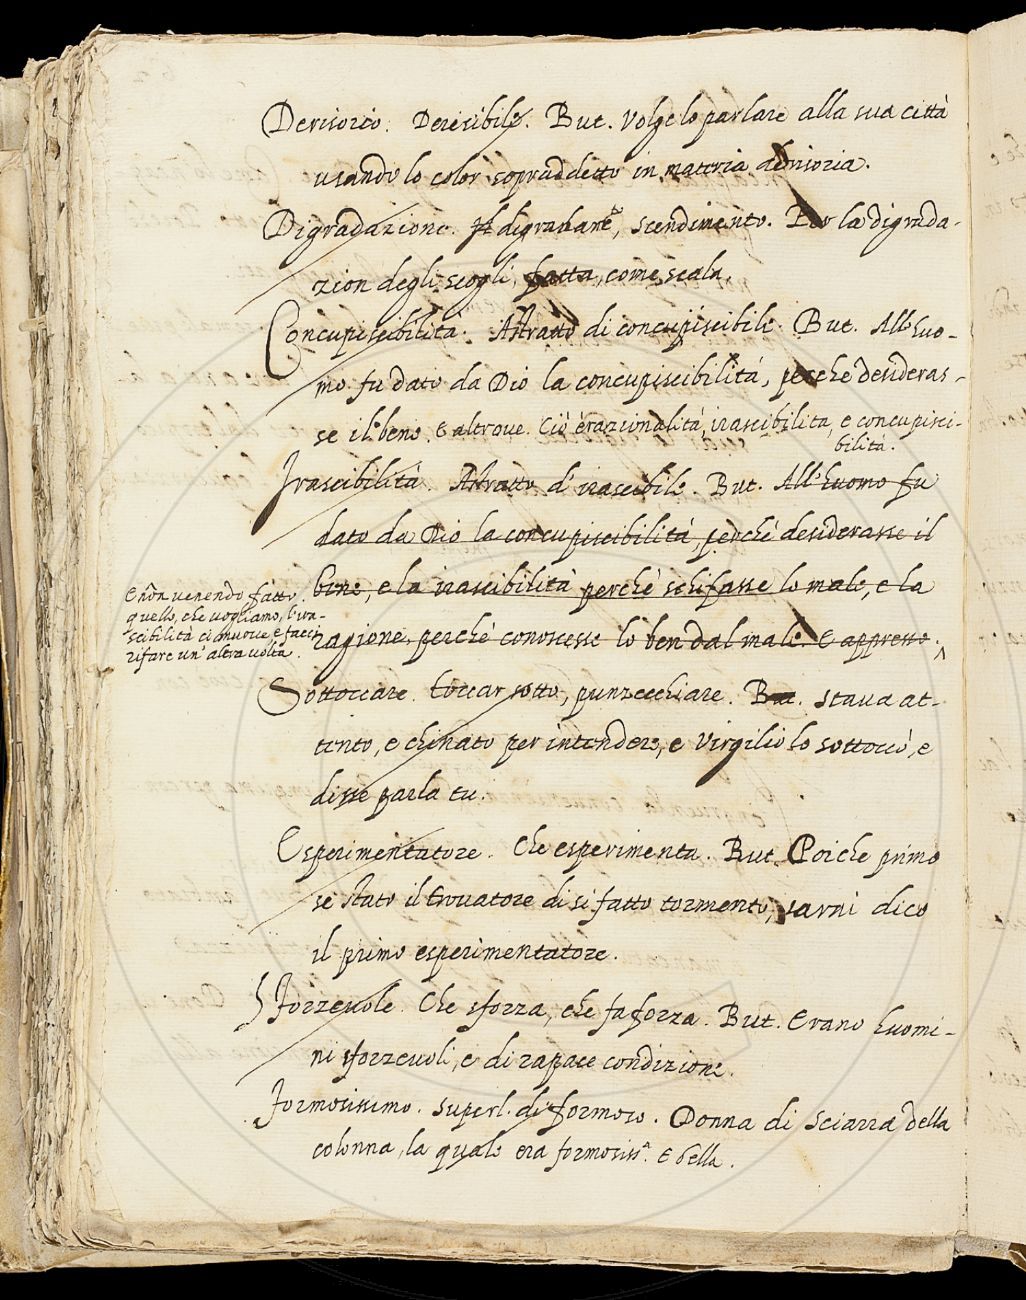 Derisorio. Deresibile. But. Volge lo parlare alla sua città
usando lo color sopraddetto in materia derisoria.
Digradazione. il digradare, scendimento. Per la digrada-
zion degli scogli, fatta, come scala.
Concupiscibilità. Astratto di concupiscibile. But. All'huo-
mo fu dato da Dio la concupiscibilità, perche desideras-
se il bene. E altrove. Ciò è razionalità, irascibilita, e concupisci-
bilità.
Irascibilità. Astratto d'irascibile. But. All'huomo fu
dato da Dio la concupiscibilità, perché desiderasse il
bene, e la irascibilità perché schifasse lo male, e la
ragione, perché conoscesse lo ben dal male. E appresso.
E non venendo fatto
quello, che vogliamo, l'ira-
scibilità ci muove, e facci
rifare un'altra volta.
Sottoccare. toccar sotto, punzecchiare. But. stava at-
tento, e chinato per intendere, e Virgilio lo sottoccò, e
disse parla tu.
Esperimentatore. Che esperimenta. But. Poiche primo
se stato il trovatore di si fatto tormento, sarai dico
il primo esperimentatore.
Sforzevole. Che sforza, che fa forza. But. Erano huomi-
ni sforzevoli, e di rapace condizione.
Formosissimo. superl. di formoso. Donna di Sciarra della
colonna, la quale era formosiss.ª e bella.